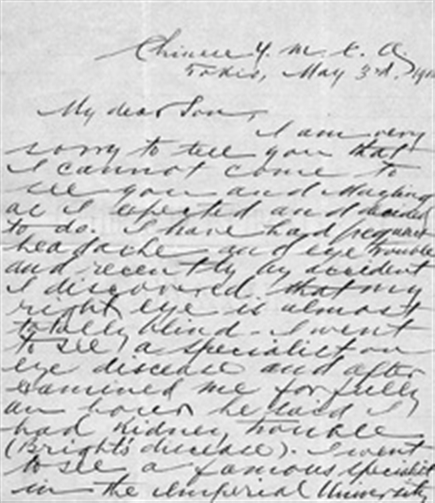 Chinese Y. M. C. A.
Tokio, May 3rd, 191
My dear Son,
I am very
sorry to tell you that
I cannot come to
see you and Mayling
as I expected and decided
to do. I have had frequent
headache and eye trouble
and recently by accident
I discovered that my
right eye is almost
totally blind. I went
to see a specialist on
eye disease and after
examined me for fully
an hour he said I
had Kidney trouble
(Bright's disease). I went
to see a famous specialist
in the Imperial University